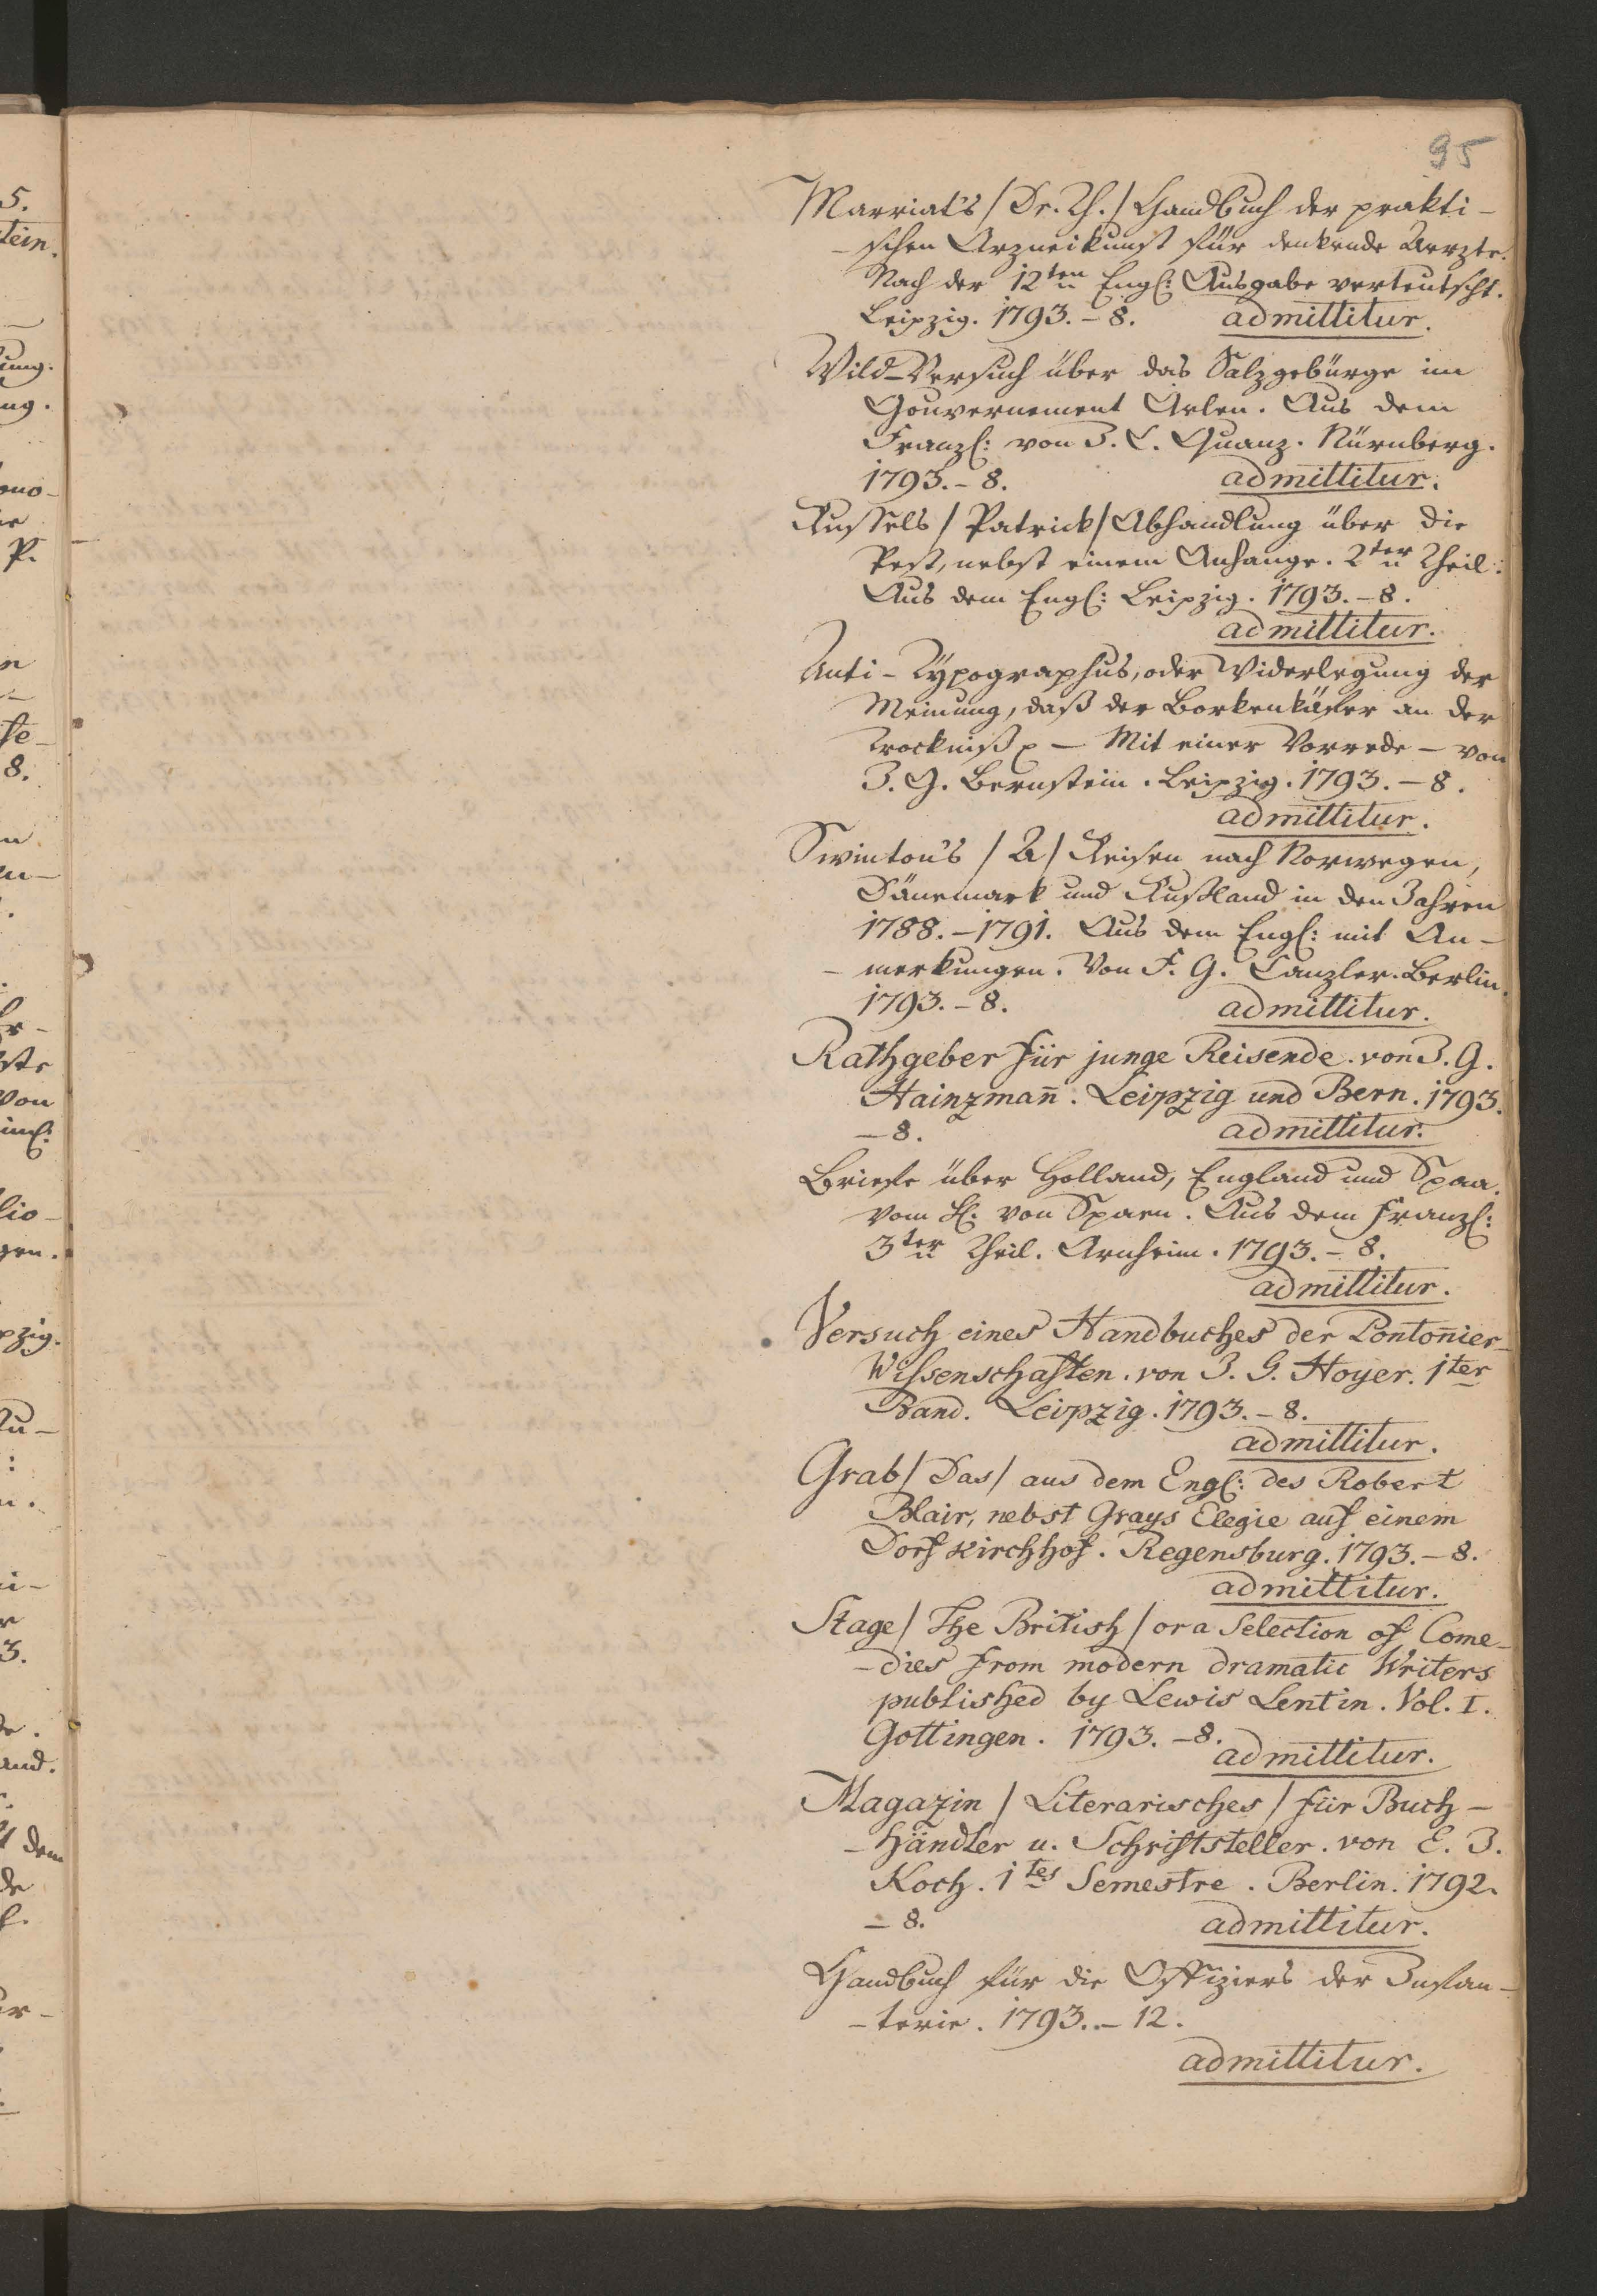 95
Marriat's / Dr. Th. / Handbuch der prakti-
-schen Arzneikunst für denkende Aerzte.
Nach der 12ten Engl: Ausgabe verteutscht.
Leipzig. 1793. - 8. admittitur.
Wild-Versuch über das Salzgebürge im
Gouvernement Aelen. Aus dem
Franzl: von J. C. Quanz. Nürnberg.
1793. - 8. admittitur.
Russels / Patrick / Abhandlung über die
Pest, nebst einem Anhange. 2ter Theil.
Aus dem Engl: Leipzig. 1793. - 8.
admittitur.
Anti-Typographus, oder Widerlegung der
Meinung, daß der Borkenkäfer an der
Trockniß p - Mit einer Vorrede - von
J. G. Bernstein. Leipzig. 1793. - 8.
admittitur.
Swinton's / A / Reisen nach Norwegen,
Dänemark und Rußland in den Jahren
1788. - 1791. Aus dem Engl: mit An-
- merkungen. Von F. G. Canzler. Berlin.
1793. - 8. admittitur.
Rathgeber für junge Reisende. von J. G.
Hainzman̄. Leipzig und Bern. 1793.
- 8. admittitur.
Briefe über Holland, England und Spaa.
vom H: von Spaen. Aus dem Franzl:
3ter Theil. Arnheim. 1793. - 8.
admittitur.
Versuch eines Handbuches der Ponton̄ier-
Wissenschaften. von J. G. Hoyer. 1ter
Band. Leipzig. 1793. - 8.
admittitur.
Grab / Das / aus dem Engl: des Robert
Blair, nebst Grays Elegie auf einem
Dorfkirchhof. Regensburg. 1793. - 8.
admittitur.
Stage / The British / or a Selection of Come-
- dies from modern dramatic Writers
published by Lewis Lentin. Vol. I.
Gottingen. 1793. - 8.
admittitur.
Magazin / Literarisches / für Buch-
- händler u. Schriftsteller. von E. J.
Koch. 1tes Semestre. Berlin. 1792.
- 8. admittitur.
Handbuch für die Offiziers der Infan-
- terie. 1793. - 12.
admittitur.